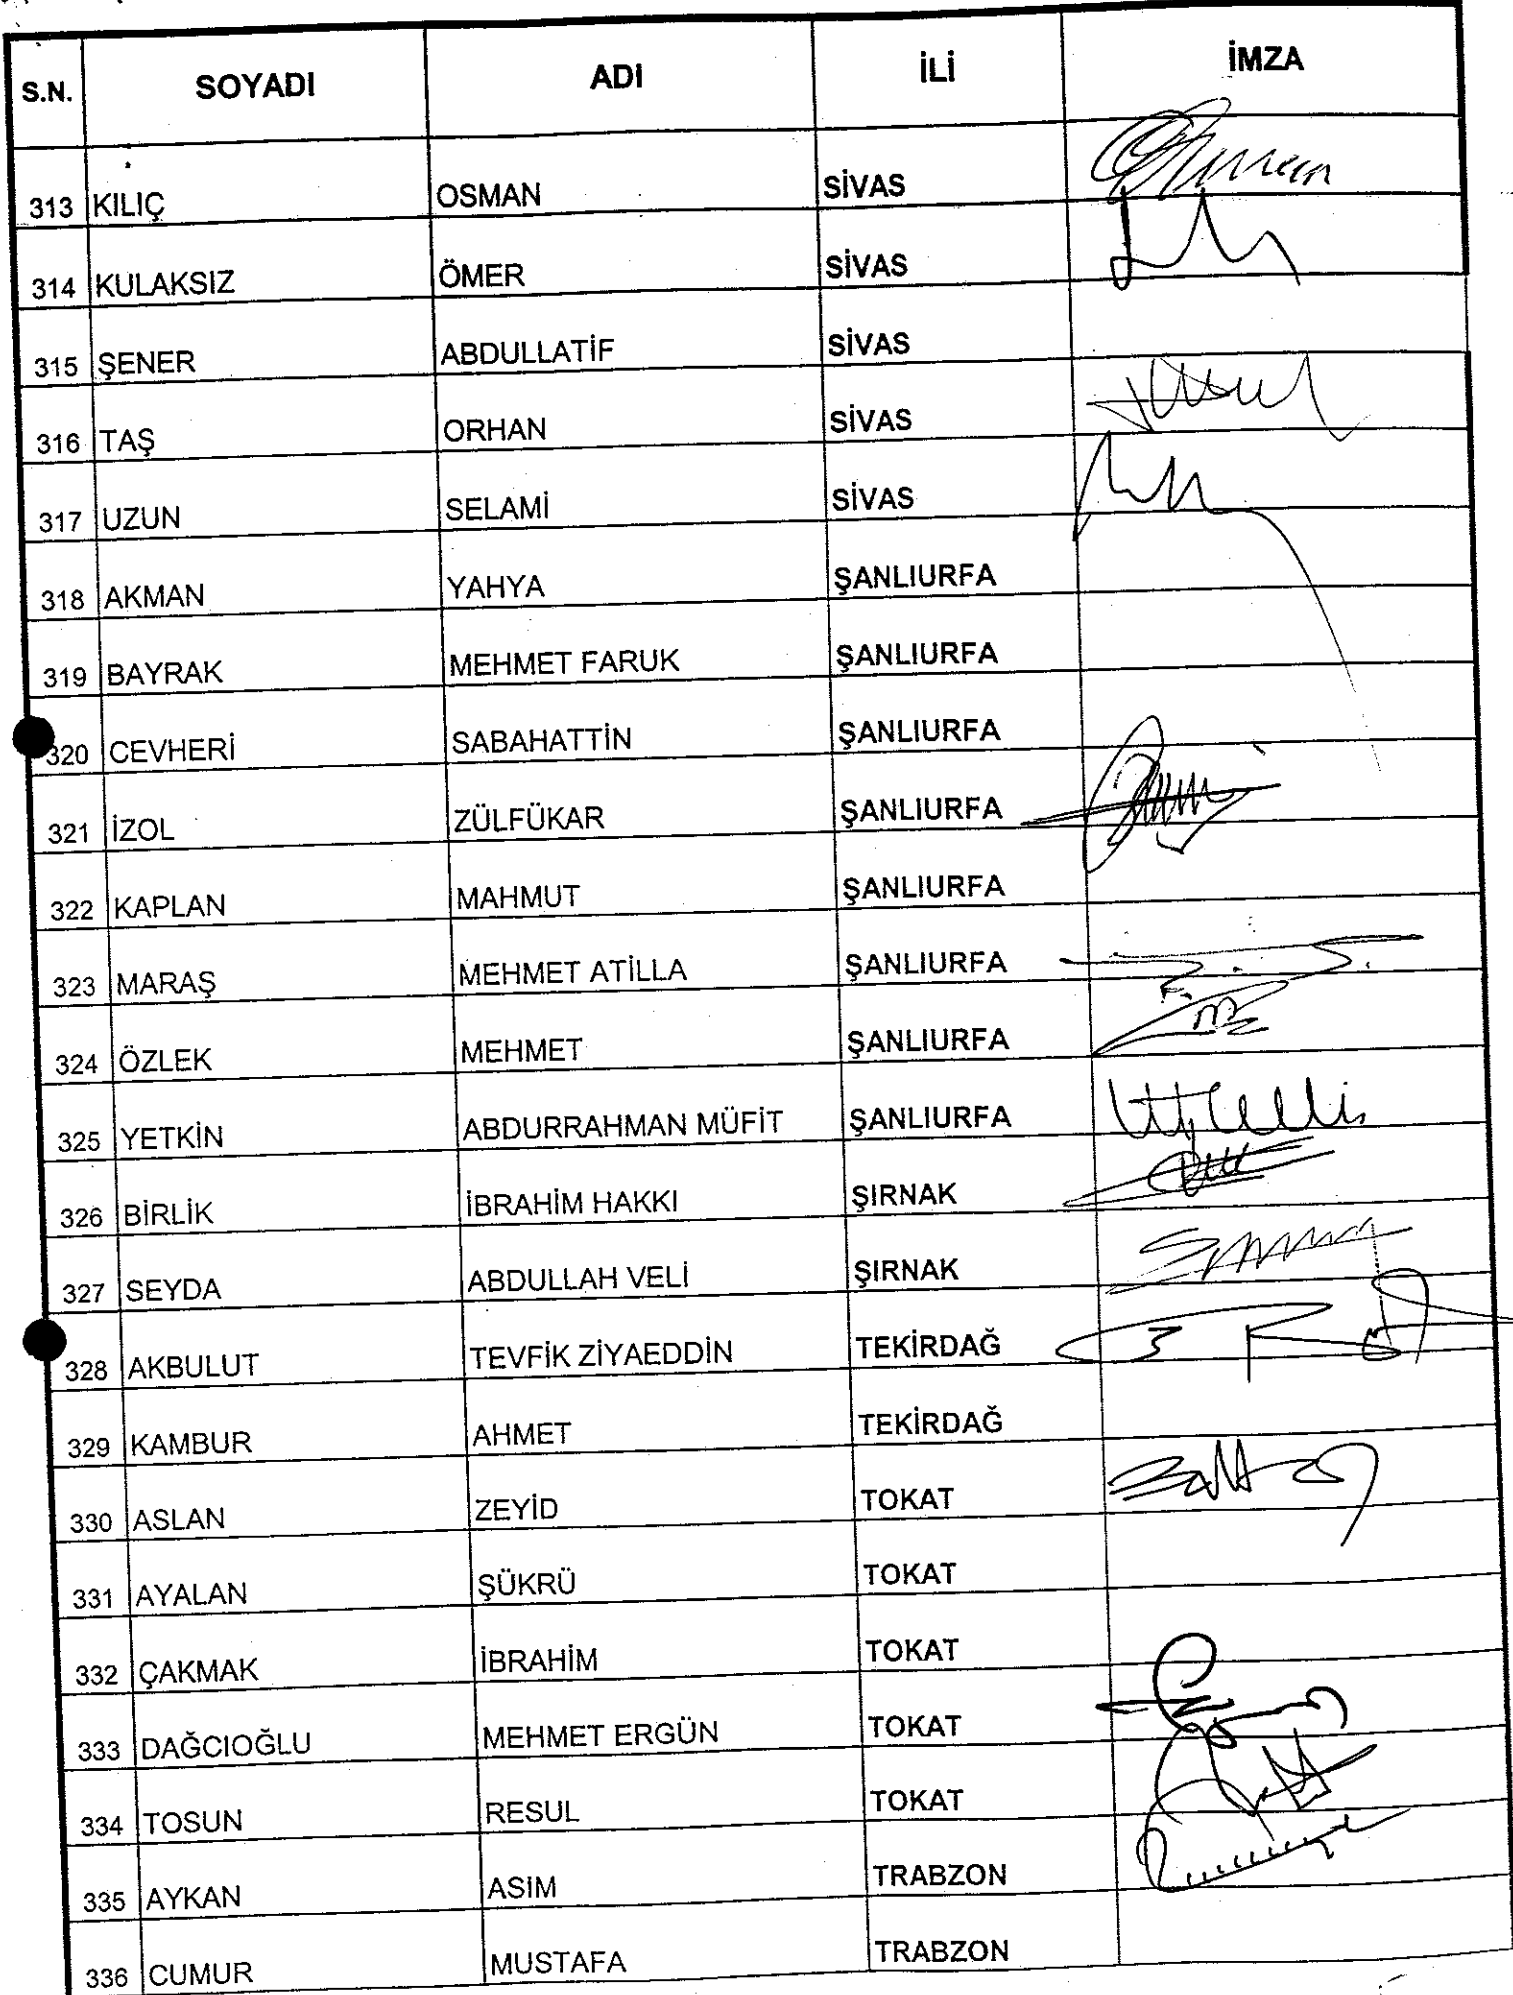 S.N. SOYADI ADI İLİ İMZA
313 KILIÇ OSMAN SİVAS
314 KULAKSIZ ÖMER SİVAS
315 ŞENER ABDULLATİF SİVAS
316 TAŞ ORHAN SİVAS
317 UZUN SELAMİ SİVAS
318 AKMAN YAHYA ŞANLIURFA
319 BAYRAK MEHMET FARUK ŞANLIURFA
320 CEVHERİ SABAHATTİN ŞANLIURFA
321 İZOL ZÜLFÜKAR ŞANLIURFA
322 KAPLAN MAHMUT ŞANLIURFA
323 MARAŞ MEHMET ATİLLA ŞANLIURFA
324 ÖZLEK MEHMET ŞANLIURFA
325 YETKİN ABDURRAHMAN MÜFİT ŞANLIURFA
326 BİRLİK İBRAHİM HAKKI ŞIRNAK
327 SEYDA ABDULLAH VELİ ŞIRNAK
328 AKBULUT TEVFİK ZİYAEDDİN TEKİRDAĞ
329 KAMBUR AHMET TEKİRDAĞ
330 ASLAN ZEYİD TOKAT
331 AYALAN ŞÜKRÜ TOKAT
332 ÇAKMAK İBRAHİM TOKAT
333 DAĞCIOĞLU MEHMET ERGÜN TOKAT
334 TOSUN RESUL TOKAT
335 AYKAN ASIM TRABZON
336 CUMUR MUSTAFA TRABZON